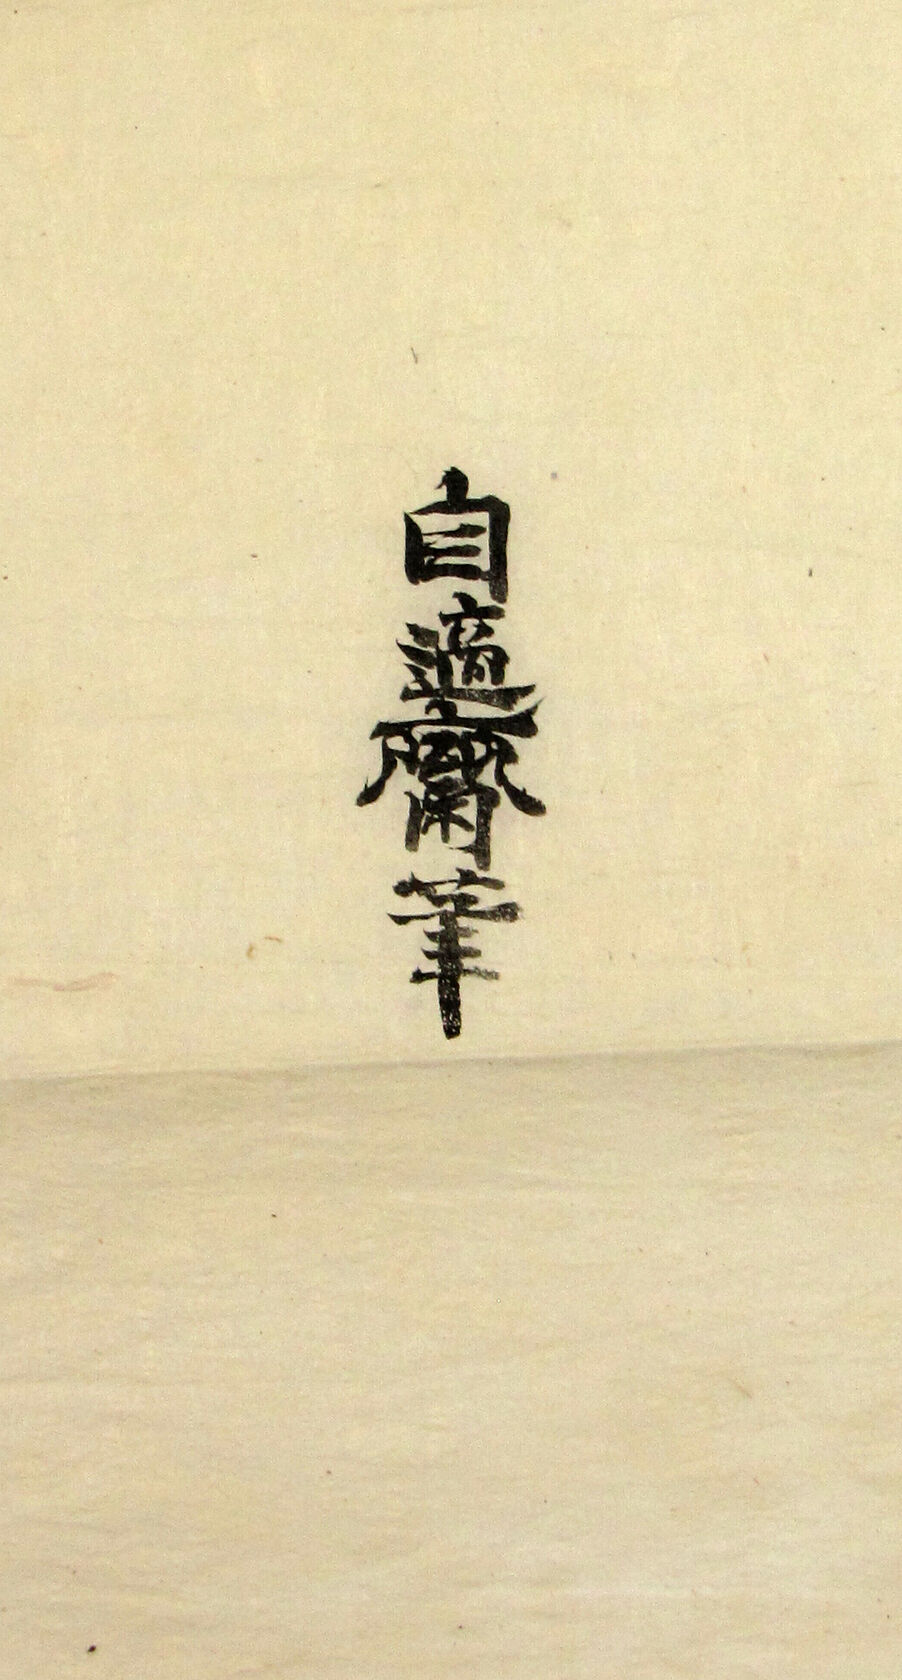 自適齋筆